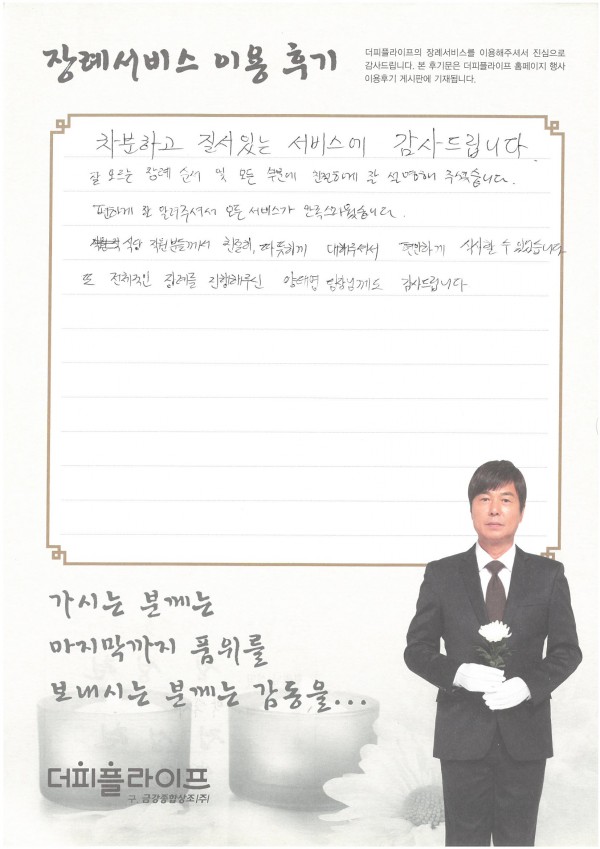 장례서비스 이용 후기
더피플라이프의 장례서비스를 이용해주셔서 진심으로
감사드립니다. 본 후기문은 더피플라이프 홈페이지 행사
이용후기 게시판에 기재됩니다.
차분하고 질서있는 서비스에 감사드립니다.
잘 모르는 장례 순서 및 모든 부분에 친절하게 잘 설명해 주셨습니다.
편하게 잘 알려주셔서 모든 서비스가 만족스러웠습니다.
식당 직원분들께서 친절히, 따뜻하게 대해주셔서 편안하게 식사할 수 있었습니다
또 전체적인 장례를 진행해주신 양태엽 팀장님께도 감사드립니다
가시는 분께는
마지막까지 품위를
보내시는 분께는 감동을...
더피플라이프
구. 금강종합상조(주)